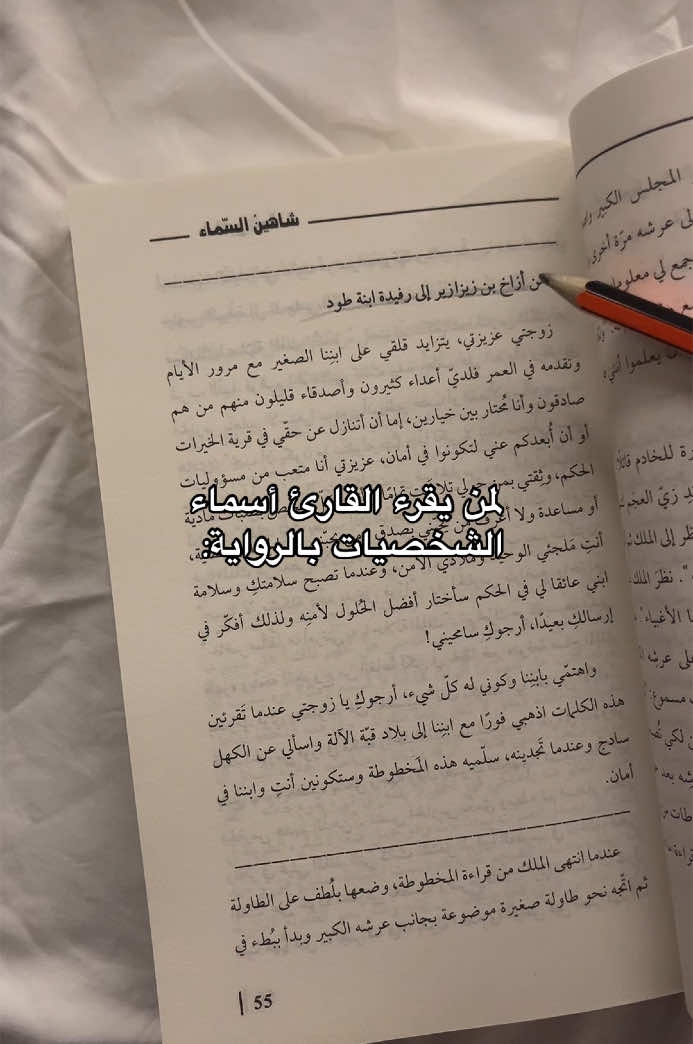 شاهينُ السّماء
من أزاخ بن زيزازير إلى رفيدة ابنة طود
زوجتي عزيزتي، يتزايد قلقي على ابنِنا الصغير مع مرور الأيام
وتقدمه في العمر فلديّ أعداء كثيرون وأصدقاء قليلون منهم من هم
صادقون وأنا مُحتار بين خيارين، إما أن أتنازل عن حقّي في قرية الخيرات
أو أن أُبعدكم عني لتكونوا في أمان، عزيزتي أنا متعب من مسؤوليات
الحكم، وثِقتي بمن حولي تلاشت تمامًا
أو مساعدة ولا أعرف من يحبّني بصدق
أنتِ مَلجئي الوحيد وملاذي الآمن، وعندما تصبح سلامتكِ وسلامة
ابني عائقا لي في الحكم سأختار أفضل الحُلول لأمنِه ولذلك أفكّر في
إرسالكِ بعيدًا، أرجوكِ سامحيني!
واهتمّي بابنِنا وكوني له كلّ شيء، أرجوكِ يا زوجتي عندما تَقرئين
هذه الكلمات اذهبي فورًا مع ابنِنا إلى بلاد قبّة الآلة واسألي عن الكهل
سادج وعندما تَجدينه، سلّميه هذه المَخطوطة وستكونين أنتِ وابننا في
أمان.
عندما انتهى الملك من قراءة المخطوطة، وضعها بلُطف على الطاولة
ثم اتّجه نحو طاولة صغيرة موضوعة بجانب عرشه الكبير وبدأ ببُطء في
55
لمن يقرء القارئ أسماء
الشخصيات بالرواية:
المجلس الكبير
عرشه مرّة أخرى
جمع لي
يعلموا
للخادم
زيّ
نظر إلى الملك
نظرَ الملك
الأغبياء
على عرشه
مسموع:
لكي
بعد